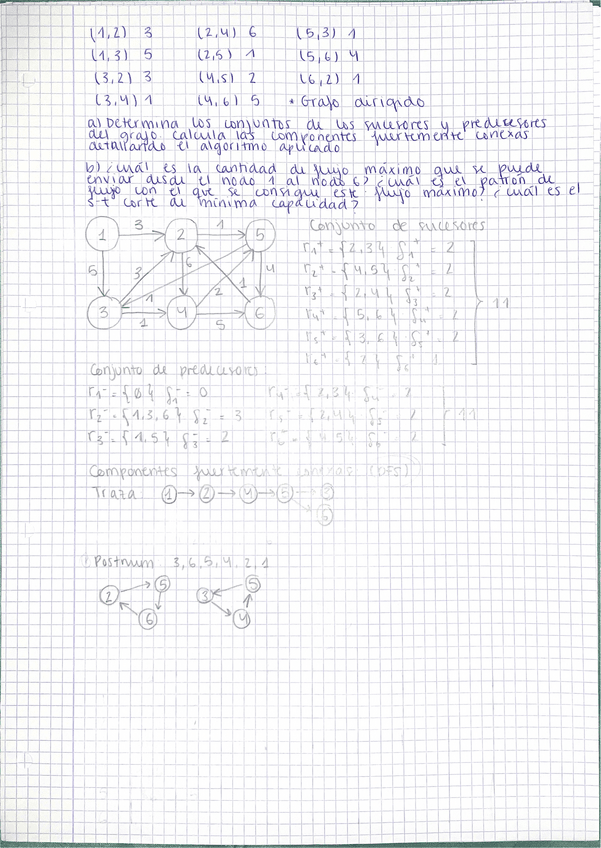 (1,2) 3 (2,4) 6 (5,3) 1
(1,3) 5 (2,5) 1 (5,6) 4
(3,2) 3 (4,5) 2 (6,2) 1
(3,4) 1 (4,6) 5 * Grafo dirigido
a) Determina los conjuntos de los sucesores y predecesores
del grafo calcula las componentes fuertemente conexas
detallando el algoritmo aplicado
b) ¿cuál es la cantidad de flujo máximo que se puede
enviar desde el nodo 1 al nodo 6? ¿cuál es el patrón de
flujo con el que se consigue este flujo máximo? ¿cuál es el
s-t corte de mínima capacidad?
1 3 2 1 5
5 3 6 1 2 1 4
3 1 4 5 6
Conjunto de sucesores
Γ1+ = {2,3} δ1+ = 2
Γ2+ = {4,5} δ2+ = 2
Γ3+ = {2,4} δ3+ = 2
Γ4+ = {5,6} δ4+ = 2
Γ5+ = {3,6} δ5+ = 2
Γ6+ = {2} δ6+ 1
11
Conjunto de predecesores:
Γ1- = {∅} δ1- = 0 Γ4- = {2,3} δ4- = 2
Γ2- = {1,3,6} δ2- = 3 Γ5- = {2,4} δ5- = 2
Γ3- = {1,5} δ3- = 2 Γ6- = {4,5} δ6- = 2
11
Componentes fuertemente conexas (DFS)
Traza 1 → 2 → 4 → 5 → 3
6
Postnum 3, 6, 5, 4, 2, 1
2 5 6
3 5 4